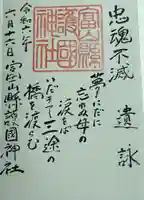 忠魂不滅
遺詠
夢にだに
忘れぬ母の
涙をば
いだきて三途の
橋を渡らむ
富山縣
護國
神社
令和六年
六月十六日 富山縣護國神社